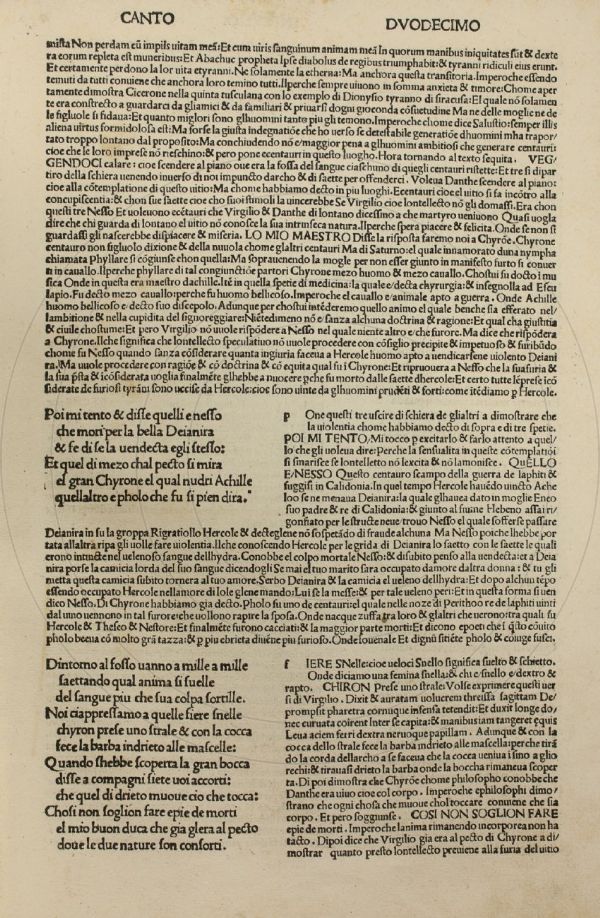 CANTO DVODECIMO
mista Non perdam cũ impiis uitam meã: Et cum uiris sanguinum animam meã In quorum manibus iniquitates sũt & dexte
ra eorum repleta est muneribus: Et Abachuc propheta Ipse diabolus de regibus triumphabit: & tyranni ridiculi eius erunt.
Et certamente perdono la lor uita etyranni. Ne solamente la etherna: Ma anchora questa transitoria. Imperoche essendo
temuti da tutti conuiene che anchora loro temino tutti. Ilperche sempre uiuono in somma anxieta & timore: Chome aper
tamente dimostra Cicerone nella quinta tusculana con lo exemplo di Dionysio tyranno di siracusa: Et qual e nõ solamen
te era constrecto a guardarci da gliamici & da familiari & priuarsi dogni gioconda cõsuetudine Ma ne delle mogli ne de
le figluole si fidaua: Et quanto migliori sono glhuomini tanto piu gli temono. Imperoche chome dice Salustio: semper illis
aliena uirtus formidolosa est: Ma forse la giusta indegnatiõe che ho uerso se detestabile generatiõe dhuomini mha trapor/
tato troppo lontano dal proposito: Ma conchiudendo nõ e/maggior pena a glhuomini ambitiosi che generare centauri:
cioe che le loro imprese nõ rieschino: & pero pone ecentauri in questo luogho. Hora tornando al texto sequita. VEG/
GENDOCI calare: cioe scendere al piano oue era la fossa del sangue ciaschuno di quegli centauri ristette: Et tre si dipar
tiro della schiera uenendo inuerso di noi impuncto darcho & di saette per offenderci. Voleua Danthe scendere al piano:
cioe alla cõtemplatione di questo uitio: Ma chome habbiamo decto in piu luoghi. Ecentauri cioe el uitio si fa incõtro alla
concupiscentia: & chon sue saette cioe cho suoi stimoli la uincerebbe Se Virgilio cioe lontellecto nõ gli domassi. Era chon
questi tre Nesso Et uoleuono ecẽtauri che Virgilio & Danthe di lontano dicessino a che martyro ueniuono Quasi uogla
dire che chi guarda di lontano el uitio nõ conosce la sua intrinseca natura. Ilperche spera piacere & felicita. Onde se non si
guardassi gli nascerebbe dispiacere & miseria. LO MIO MAESTRO Disse la risposta faremo noi a Chyrõe. Chyrone
centauro non figluolo dixione & della nuuola chome glaltri centauri Ma di Saturno: el quale innamorato duna nympha
chiamata Phyllare si cõgiunse chon quella: Ma soprauenendo la mogle per non esser giunto in manifesto furto si conuer
ti in cauallo. Ilperche phyllare di tal congiunctiõe partori Chyrone mezo huomo & mezo cauallo. Chostui fu docto ĩ mu
sica Onde in questa era maestro dachille. Itẽ in quella spetie di medicina: la qual e/decta chyrurgia: & insegnolla ad Escu
lapio. Fu decto mezo cauallo: perche fu huomo bellicoso. Imperoche el cauallo e/animale apto a guerra. Onde Achille
huomo bellicoso e/decto suo discepolo. Adunque per chostui intẽderemo quello animo el quale benche sia efferato nel/
lambitione & nella cupidita del signoreggiare: Niẽtedimeno nõ e sanza alchuna doctrina & ragione: Et qual cha giustitia
& ciuile chostume: Et pero Virgilio nõ uuole rispõdere a Nesso nel quale niente altro e che furore. Ma dice che rispõdera
a Chyrone. Ilche significa che lontellecto speculatiuo nõ uuole procedere con cõsiglio precipite & impetuoso & furibũdo
chome fu Nesso quando sanza cõsiderare quanta ingiuria faceua a Hercole huomo apto a uendicarsene uiolento Deiani
ra. Ma uuole procedere con ragiõe & cõ doctrina & cõ equita qual fu ĩ Chyrone: Et ripruouera a Nesso che la sua furia &
la sua põsta & icõsiderata uoglia finalmẽte glhebbe a nuocere: pche fu morto dalle saette dhercole: Et certo tutte lẽprese icõ
siderate de furiosi tyrãni sono uccise da Hercole: cioe sono uinte da glhuomini prudẽti & forti: come itẽdiamo ꝑ Hercole.
Poi mi tento & disse quelli e nesso
che mori per la bella Deianira
& fe di se la uendecta egli stesso:
Et quel di mezo chal pecto si mira
el gran Chyrone el qual nudri Achille
quellaltro e pholo che fu si pien dira.
p One questi tre uscire di schiera de glialtri a dimostrare che
la uiolentia chome habbiamo decto di sopra e di tre spetie.
POI MI TENTO, Mi tocco p excitarlo & farlo attento a quel/
lo che gli uoleua dire: Perche la sensualita in queste cõtemplatiõi
si smarisce se lontelletto nõ lexcita & nõ lamonisce. QVELLO
E/NESSO Questo centauro scampo della guerra de laphiti &
fuggissi in Calidonia. In quel tempo Hercole hauẽdo uincto Ache
loo se ne menaua Deianira: la quale glhauea dato in mogle Eneo
suo padre & re di Calidonia: & giunto al fiume Hebeno assai ri/
gonfiato per le structe neue: trouo Nesso el quale sofferse passare
Deianira in su la groppa Rigratiollo Hercole & decteglene nõ sospetãdo di fraude alchuna Ma Nesso poiche lhebbe por
tata allaltra ripa gli uolle fare uiolentia. Ilche conoscendo Hercole per le grida di Deianira lo saetto con le saette le quali
erono intincte nel uelenoso sangue dellhydra. Conobbe el colpo mortale Nesso: & disubito penso alla uendecta: et a Deia
nira porse la camicia lorda del suo sangue dicendogli Se mai el tuo marito sara occupato damore daltra donna: & tu gli
metta questa camicia subito tornera al tuo amore. Serbo Deianira & la camicia el ueleno dellhydra: Et dopo alchun tẽpo
essendo occupato Hercole nellamore di Iole glene mando: Lui se la messe: & per tale ueleno peri: Et in questa forma si uen
dico Nesso. Di Chyrone habbiamo gia decto. Pholo fu uno de centauri: el quale nelle noze di Perithoo re de laphiti uinti
dal uino uennono in tal furore: che uollono rapire la sposa. Onde nacque zuffa tra loro & glaltri che uerono: tra quali fu
Hercole & Theseo & Nestore: Et finalmẽte furono cacciati: & la maggior parte morti: Et dicono epoeti che ĩ q̃sto cõuito
pholo beeua cõ molto grã tazza: & p piu ebrieta diuẽne piu furioso. Onde Iouenale Et dignũ sitiẽte pholo & cõiuge fusci.
Dintorno al fosso uanno a mille a mille
saettando qual anima si suelle
del sangue piu che sua colpa sortille.
Noi ciappressamo a quelle fiere snelle
chyron prese uno strale & con la cocca
fece la barba indrieto alle mascelle:
Quando shebbe scoperta la gran bocca
disse a compagni siete uoi accorti:
che quel di drieto muoue cio che tocca:
Chosi non soglion fare epie de morti
el mio buon duca che gia glera al pecto
doue le due nature son consorti.
f IERE SNelle: cioe ueloci Snello significa suelto & schietto.
Onde diciamo una femina snella: & chi e/snello e/dextro &
rapto. CHIRON Prese uno strale: Volse exprimere questi uer
si di Virgilio. Dixit & auratam uolucrem threissa sagittam De/
prompsit pharetra cornuque infensa tetendit: Et duxit longe do/
nec curuata coirent Inter se capita: & manibus iam tangeret equis
Leua aciem ferri dextra neruoque papillam. Adunque & con la
cocca dello strale fece la barba indrieto alle mascelle: perche tirã
do la corda dellarcho a se faceua che la cocca ueniua ĩsino a glio
rechi: & tirauasi drieto la barba onde la boccha rimaneua scoper
ta. Di poi dimostra che Chyrõe chome philosopho conobbe che
Danthe era uiuo cioe col corpo. Imperoche ephilosophi dimo/
strano che ogni chosa che muoue chol toccare conuiene che sia
corpo. Et pero soggiunse. COSI NON SOGLION FARE
epie de morti. Imperoche lanima rimanendo incorporea non ha
tacto. Dipoi dice che Virgilio gia era al pecto di Chyrone a di/
mostrar quanto presto lontellecto preuiene alla furia del uitio